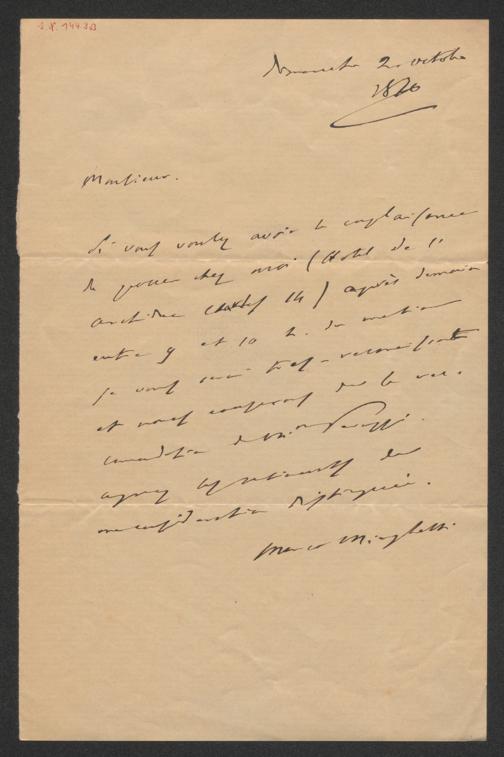 Dimanche 2 octobre
1870
Monsieur.
Si vous voulez avoir la complaisance
de passer chez moi (Hotel de l'
archiduc Charles 14) après demain
entre 9 et 10 h. du matin
je vous serai très-reconnaissant
et nous causerons de la
de
agréez
ma considération distinguée.
Marco Minghetti